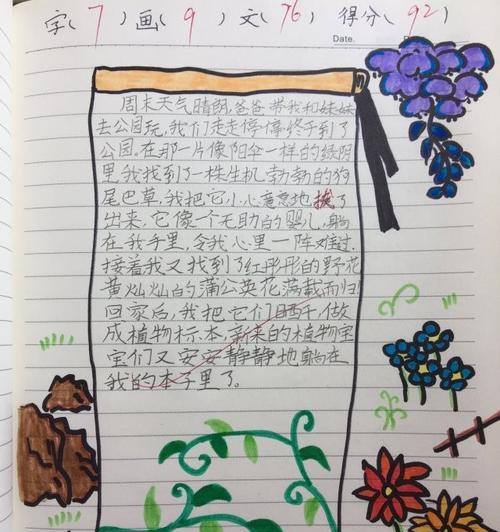 字(7)画(9)文(76)得分(92)
Date.
周末天气晴朗,爸爸带我和妹妹
去公园玩,我们走走停停终于到了
公园。在那一片像阳伞一样的绿阴
里,我找到了一株生机勃勃的狗
尾巴草,我把它小心意意地挨了
出来,它像个无助的婴儿,躺
在我手里,令我心里一阵难过.
接着我又找到了红彤彤的野花
黄灿灿的蒲公英花满载而归
回家后,我把它们晒干,做
成植物标本,新来的植物宝
宝们又安安静静地躺在
我的本子里了。